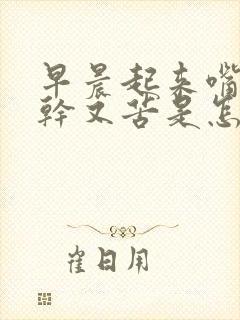 早晨起来嘴
幹又苦是怎
雀日用